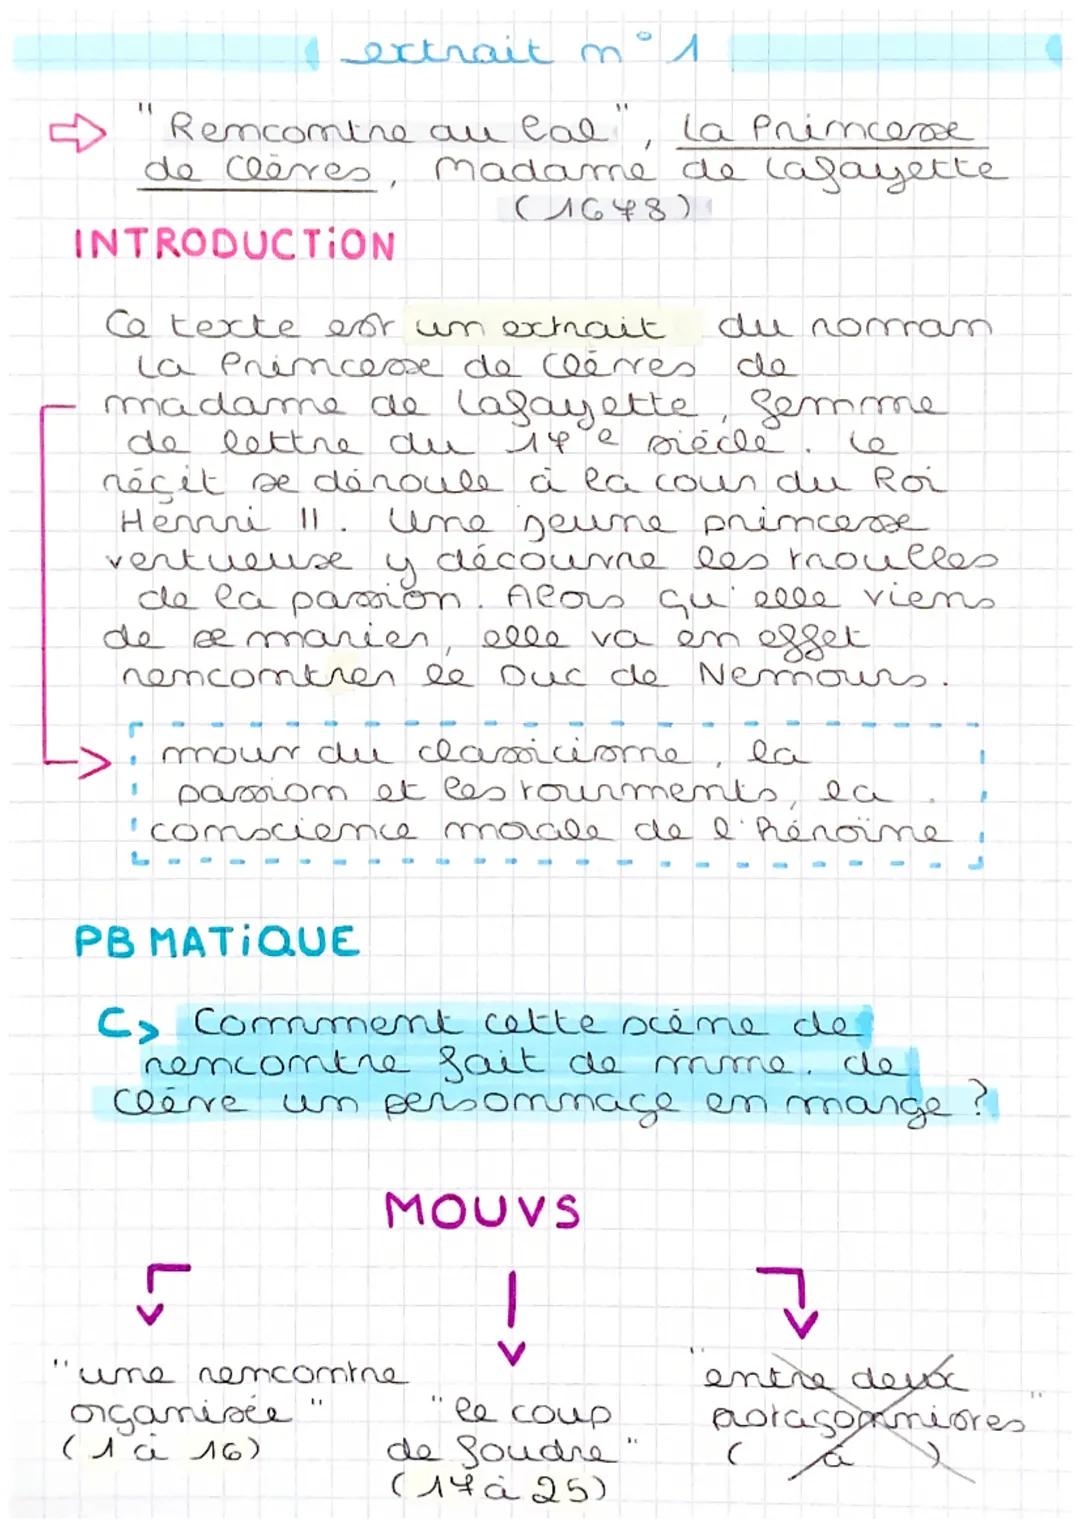 extrait n°1
"Rencontre au bal", La Princesse
de Clèves, Madame de Lafayette
(1678)
INTRODUCTION
Ce texte est un extrait du roman
La Princesse de Clèves de
madame de Lafayette, femme
de lettre du 17e siècle. Le
récit se déroule à la cour du Roi
Henri II. Une jeune princesse
vertueuse y découvre les troubles
de la passion. Alors qu'elle viens
de se marier, elle va en effet
rencontrer le Duc de Nemours.
mour du classicisme, la
passion et les tourments, la
conscience morale de l'héroïne
PB MATiQUE
Comment cette scène de
rencontre fait de mme. de
Clève un personnage en marge ?
MOUVS
"une rencontre
organisée"
(1 à 16)
"le coup
de foudre"
(17 à 25)
"entre deux
protagonnistes"
( à )